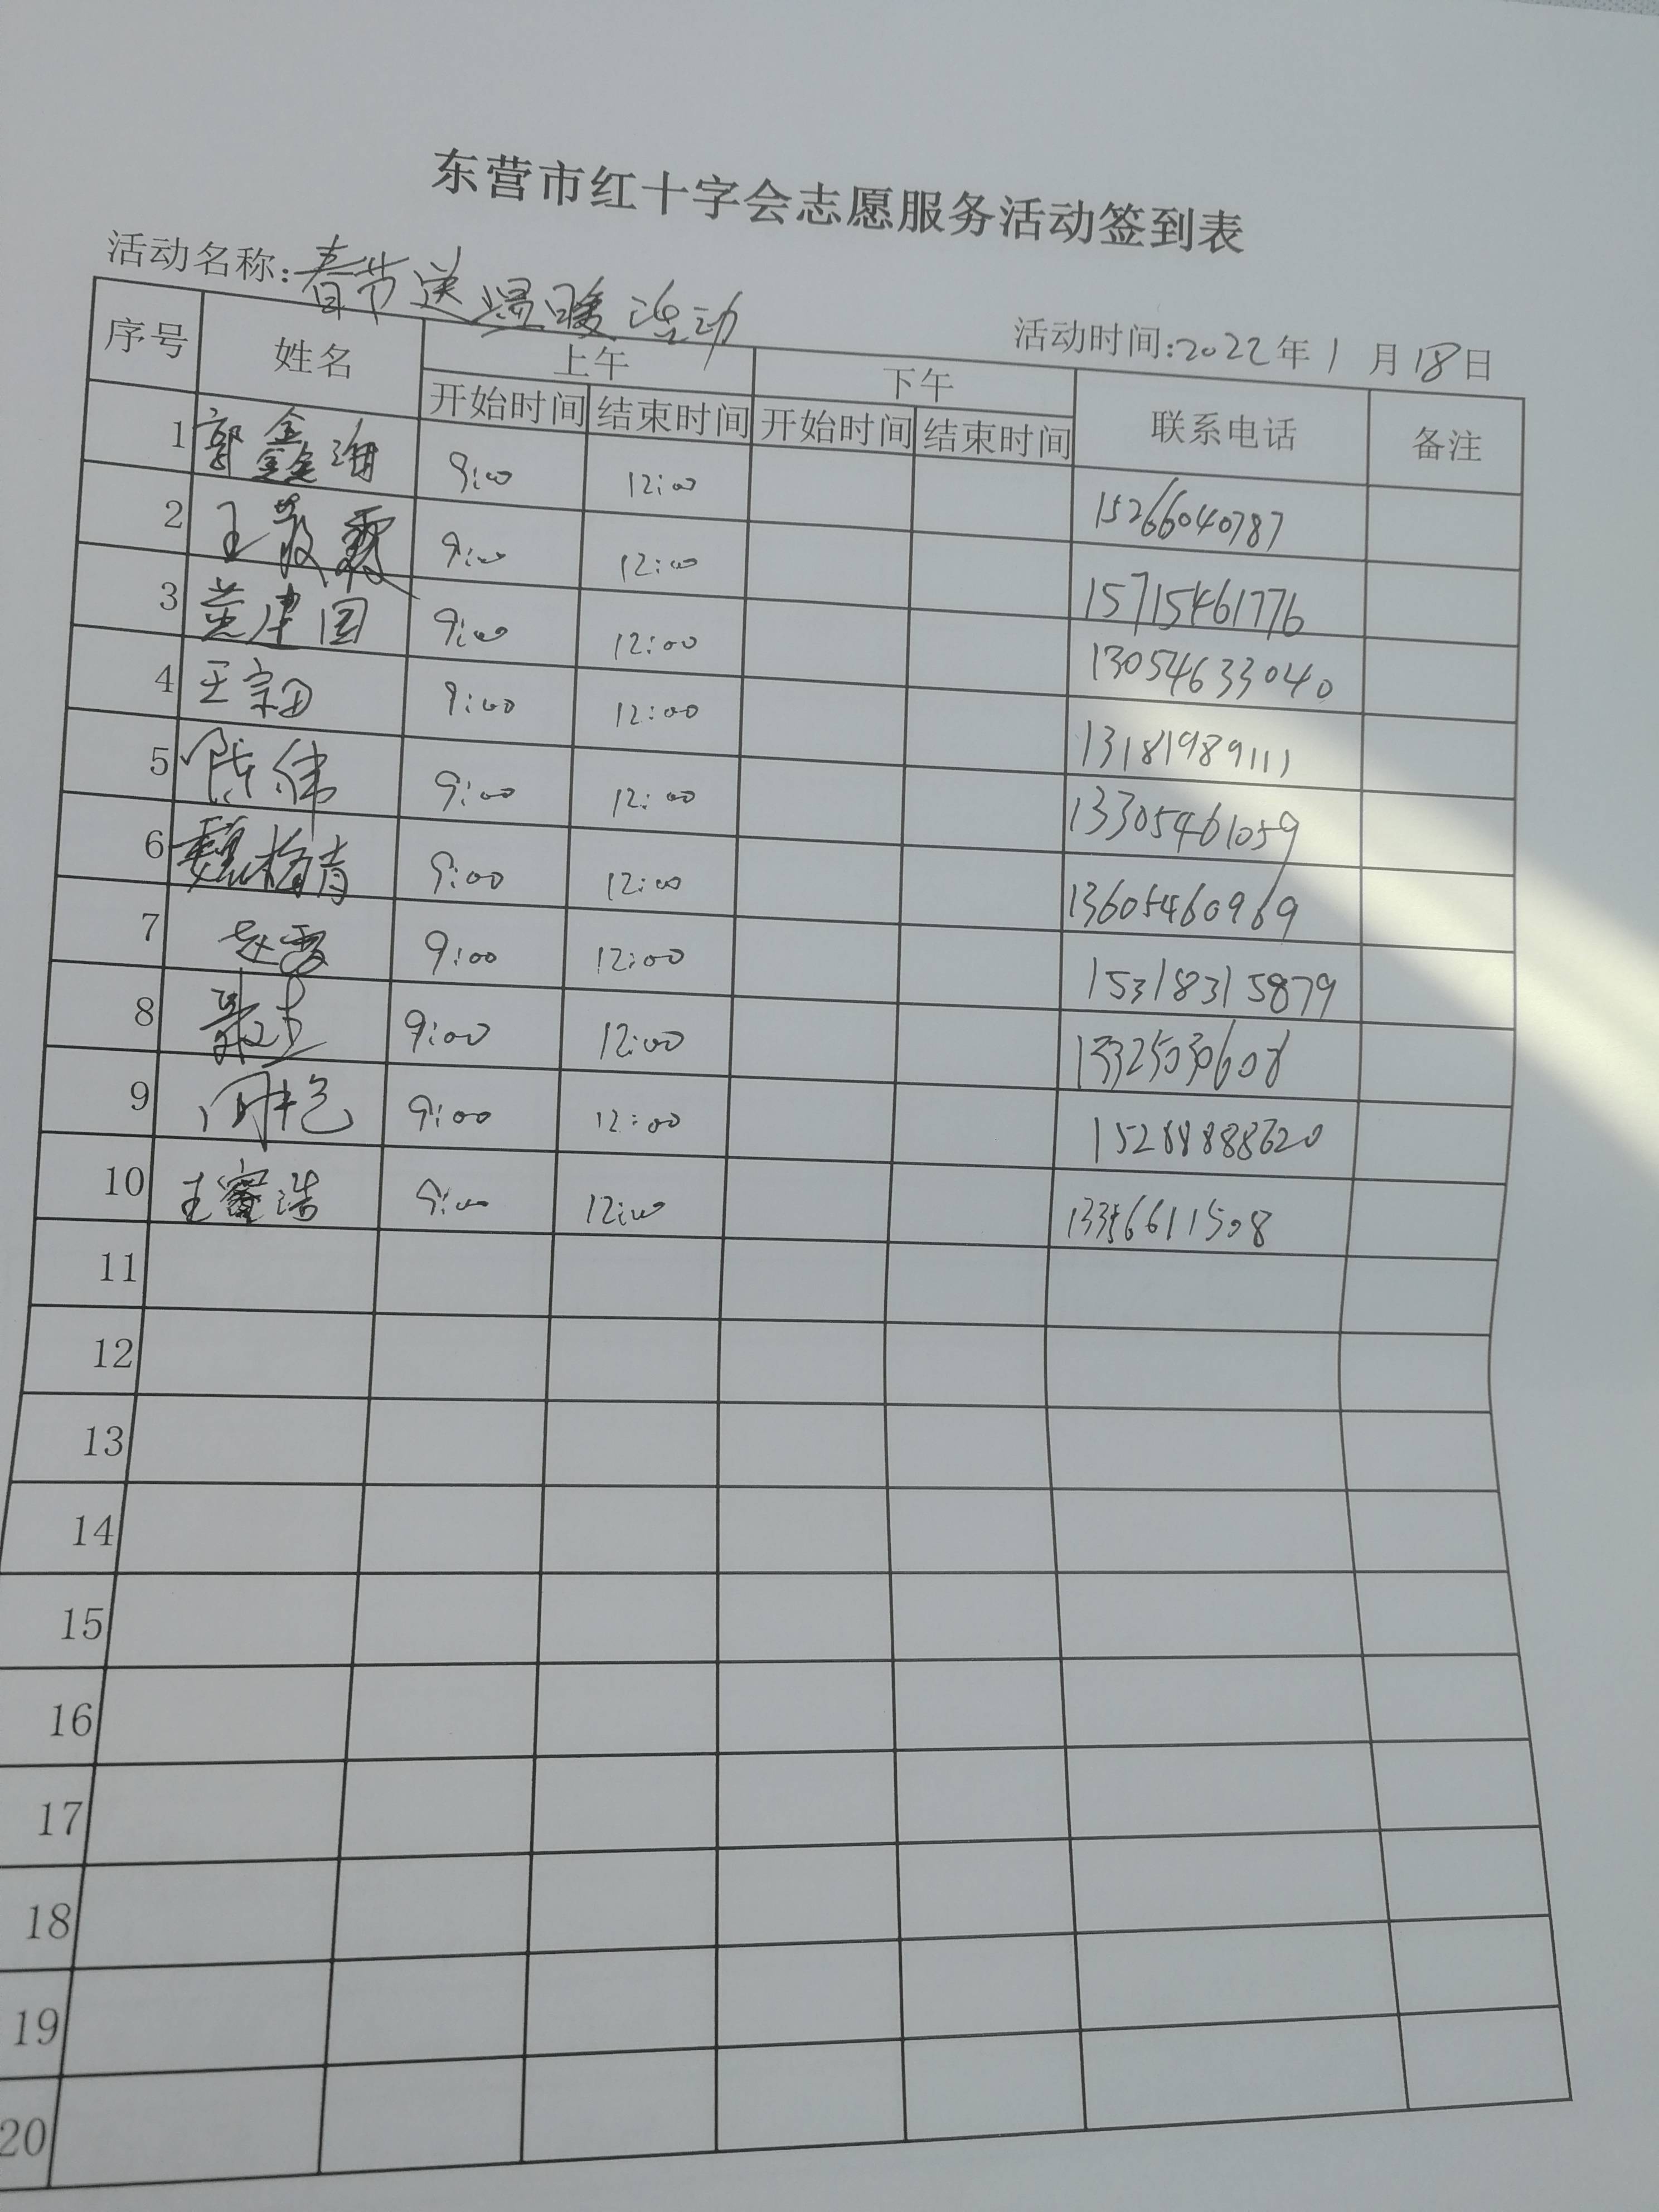 东营市红十字会志愿服务活动签到表
活动名称:春节送温暖活动
活动时间:2022年1月18日
序号 姓名 上午 下午 联系电话 备注
开始时间 结束时间 开始时间 结束时间
1 郭鑫 9:00 12:00 15266040787
2 王 9:00 12:00 15715461776
3 建国 9:00 12:00 13054633040
4 王宗 9:00 12:00 13181989111
5 陈伟 9:00 12:00 13305461059
6 魏梅青 9:00 12:00 13605460969
7 赵雪 9:00 12:00 15318315879
8 9:00 12:00 13325030608
9 闫艳 9:00 12:00
10 王浩 9:00 12:00
11
12
13
14
15
16
17
18
19
20